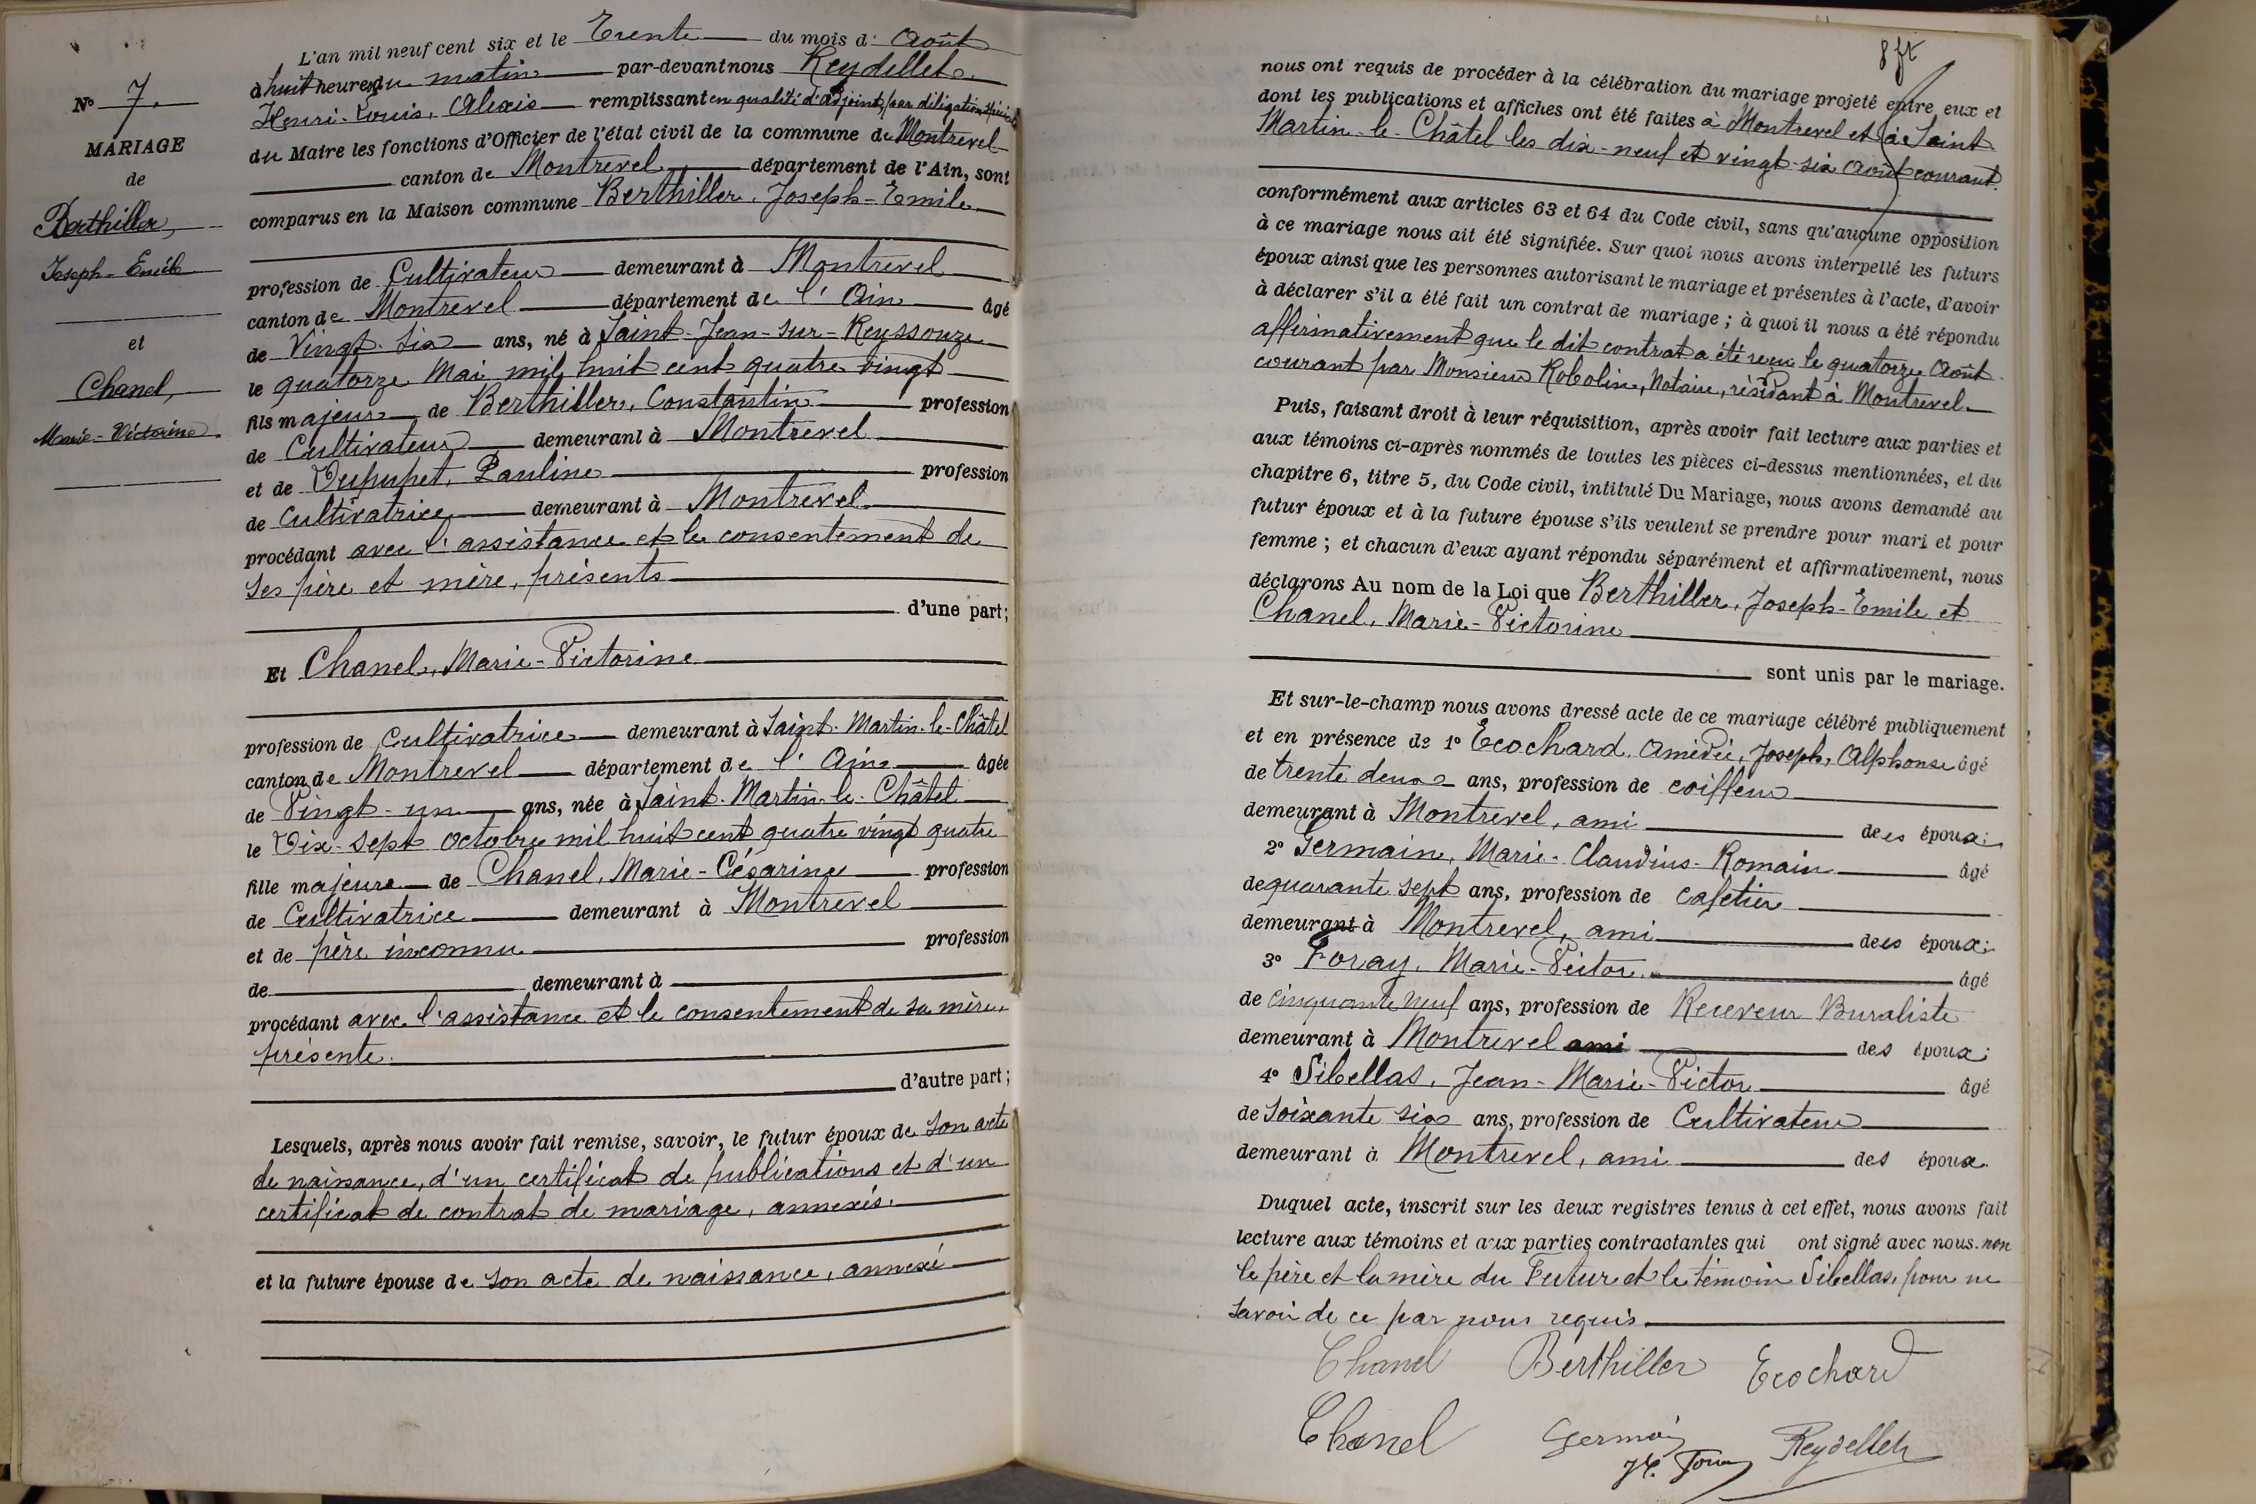 L'an mil neuf cent six et le Trente du mois d' Août
à huit heures du matin par-devant nous Reydellet
Henri-Louis, Alexis remplissant en qualité d'adjoint, par délégation
du Maire les fonctions d'Officier de l'état civil de la commune de Montrevel
canton de Montrevel département de l'Ain, sont
comparus en la Maison commune Berthiller, Joseph-Emile
profession de Cultivateur demeurant à Montrevel
canton de Montrevel département de l'Ain âgé
de Vingt-six ans, né à Saint-Jean-sur-Reyssouze
le quatorze Mai mil huit cent quatre vingt
fils majeur de Berthiller, Constantin profession
de Cultivateur demeurant à Montrevel
et de Dupupet, Pauline profession
de cultivatrice demeurant à Montrevel
procédant avec l'assistance et le consentement de
ses père et mère, présents
d'une part;
Et Chanel, Marie-Victorine
profession de Cultivatrice demeurant à Saint-Martin-le-Châtel
canton de Montrevel département de l'Ain âgée
de Vingt-un ans, née à Saint-Martin-le-Châtel
le Dix-sept octobre mil huit cent quatre vingt quatre
fille majeure de Chanel, Marie-Césarine profession
de Cultivatrice demeurant à Montrevel
et de père inconnu profession
de demeurant à
procédant avec l'assistance et le consentement de sa mère,
présente.
d'autre part;
Lesquels, après nous avoir fait remise, savoir, le futur époux de son acte
de naissance, d'un certificat de publications et d'un
certificat de contrat de mariage, annexés.
et la future épouse de son acte de naissance, annexé
N° 7.
MARIAGE
de
Berthiller,
Joseph-Emile
et
Chanel,
Marie-Victorine
8 ft
nous ont requis de procéder à la célébration du mariage projeté entre eux et
dont les publications et affiches ont été faites à Montrevel et à Saint
Martin-le-Châtel les dix-neuf et vingt-six Août courant.
conformément aux articles 63 et 64 du Code civil, sans qu'aucune opposition
à ce mariage nous ait été signifiée. Sur quoi nous avons interpellé les futurs
époux ainsi que les personnes autorisant le mariage et présentes à l'acte, d'avoir
à déclarer s'il a été fait un contrat de mariage; à quoi il nous a été répondu
affirmativement que le dit contrat a été reçu le quatorze Août
courant par Monsieur Robolin, Notaire, résidant à Montrevel.
Puis, faisant droit à leur réquisition, après avoir fait lecture aux parties et
aux témoins ci-après nommés de toutes les pièces ci-dessus mentionnées, et du
chapitre 6, titre 5, du Code civil, intitulé Du Mariage, nous avons demandé au
futur époux et à la future épouse s'ils veulent se prendre pour mari et pour
femme; et chacun d'eux ayant répondu séparément et affirmativement, nous
déclarons Au nom de la Loi que Berthiller, Joseph-Emile et
Chanel, Marie-Victorine
sont unis par le mariage.
Et sur-le-champ nous avons dressé acte de ce mariage célébré publiquement
et en présence de 1° Ecochard, Amédée, Joseph, Alphonse âgé
de trente deux ans, profession de coiffeur
demeurant à Montrevel, ami des époux;
2° Germain, Marie-Claudius-Romain âgé
de quarante sept ans, profession de cafetier
demeurant à Montrevel, ami des époux;
3° Foray, Marie-Victor âgé
de cinquante neuf ans, profession de Receveur Buraliste
demeurant à Montrevel ami des époux;
4° Sibellas, Jean-Marie-Victor âgé
de soixante six ans, profession de Cultivateur
demeurant à Montrevel, ami des époux.
Duquel acte, inscrit sur les deux registres tenus à cet effet, nous avons fait
lecture aux témoins et aux parties contractantes qui ont signé avec nous. non
le père et la mère du Futur et le témoin Sibellas, pour ne
savoir de ce par nous requis.
Chanel Berthiller Ecochard
Chanel Germain Reydellet